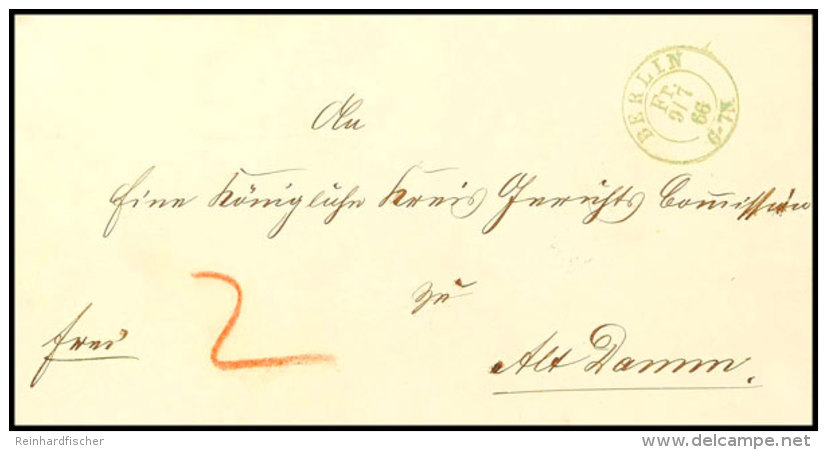 BERLIN
Fr.
9/7
66
6-7N.
An
Eine Königliche Kreis Gerichts Com̅ission
zu
frei
2
Alt Damm.
Reinhardfischer
www.delcampe.net